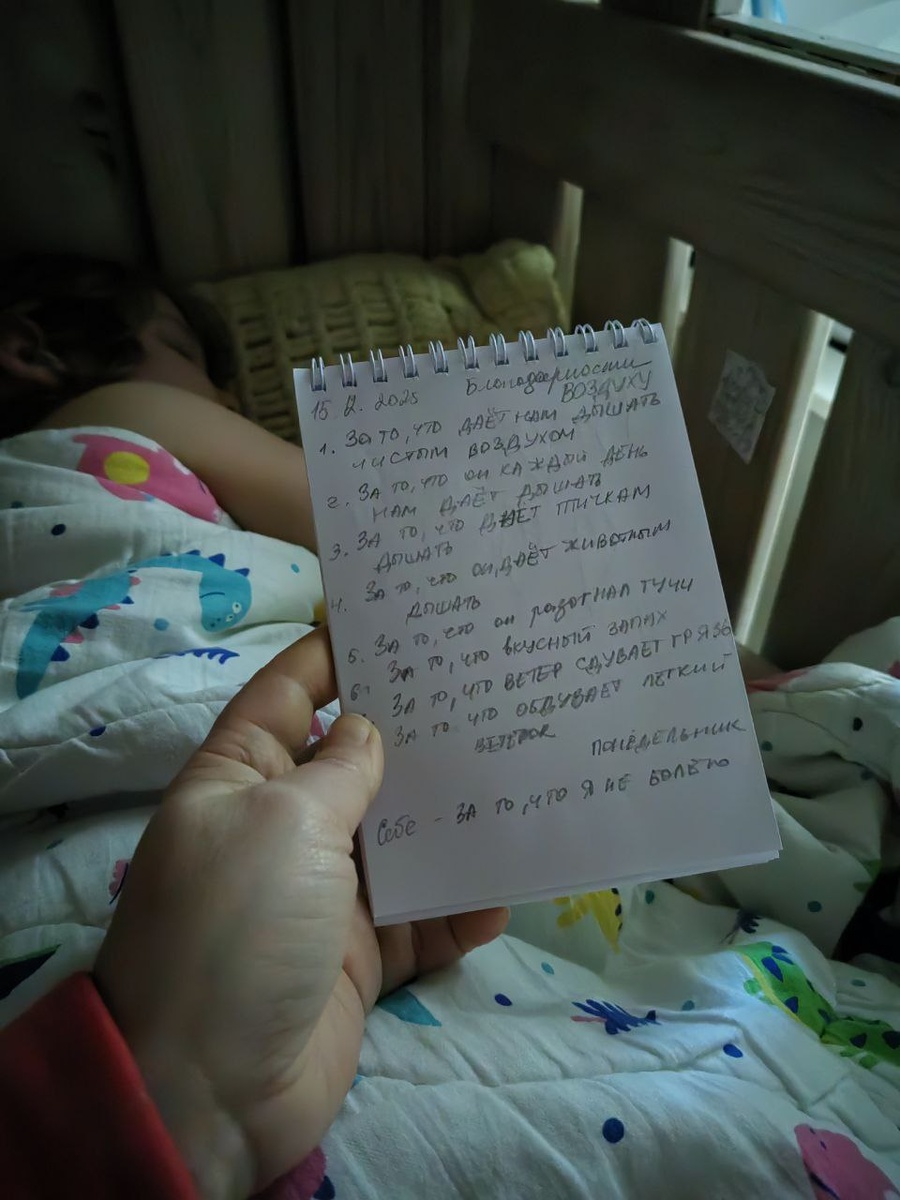 15. 12. 2025 Благодарности
ВОЗДУХУ
1. ЗА ТО, ЧТО ДАЁТ НАМ ДЫШАТЬ
ЧИСТЫМ ВОЗДУХОМ
2. ЗА ТО, ЧТО ОН КАЖДЫЙ ДЕНЬ
НАМ ДАЁТ ДЫШАТЬ
3. ЗА ТО, ЧТО ДАЕТ ПТИЧКАМ
ДЫШАТЬ
4. ЗА ТО, ЧТО ОН ДАЁТ ЖИВОТНЫМ
ДЫШАТЬ
5. ЗА ТО, ЧТО ОН РАЗОГНАЛ ТУЧИ
6. ЗА ТО, ЧТО ВКУСНЫЙ ЗАПАХ
ЗА ТО, ЧТО ВЕТЕР СДУВАЕТ ГРЯЗЬ
ЗА ТО ЧТО ОБДУВАЕТ ЛЁГКИЙ
ВЕТЕРОК
ПОНЕДЕЛЬНИК
Себе - ЗА ТО, ЧТО Я НЕ БОЛЕЮ